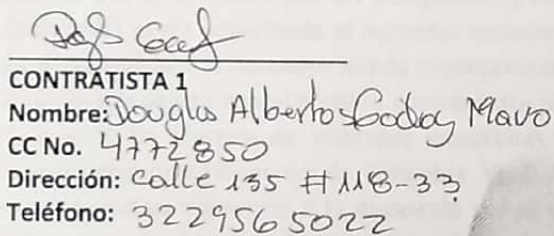 CONTRATISTA 1
Nombre: Douglas Alberto Godoy Mavo
CC No. 4772850
Dirección: Calle 135 # 118-33
Teléfono: 3229565022